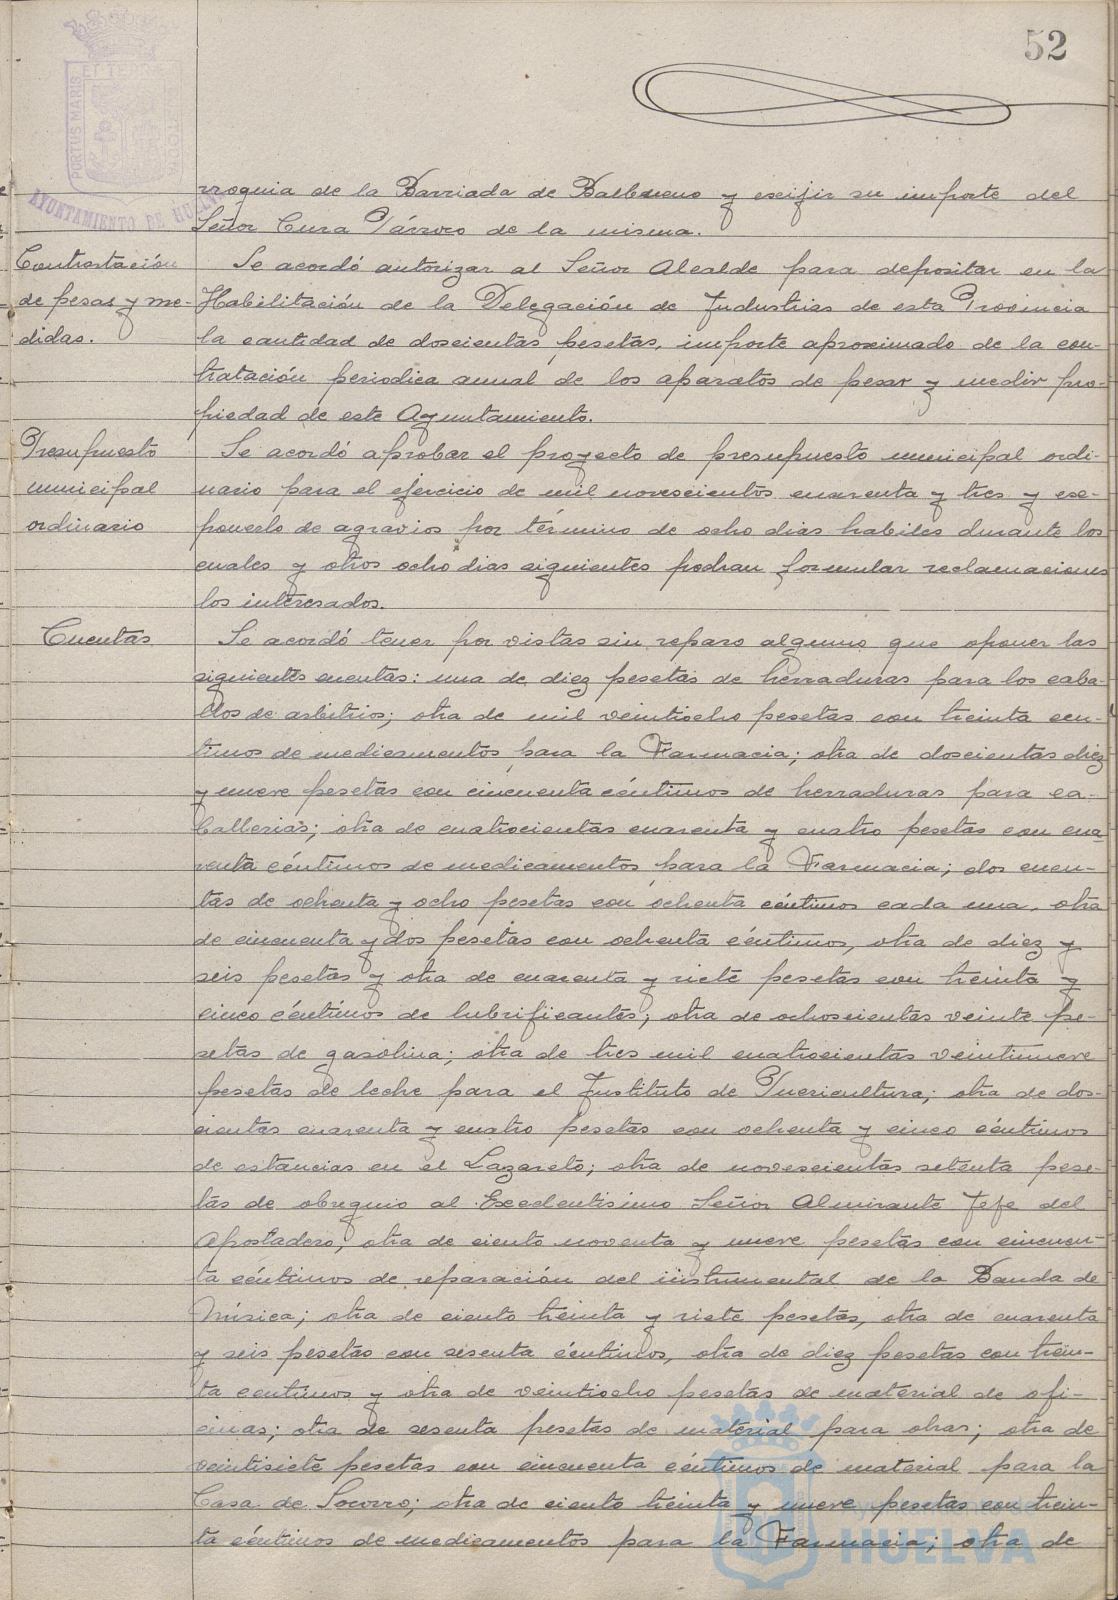 52
PORTUS MARIS ET TERRÆ CUSTODIA
AYUNTAMIENTO DE HUELVA
rroquia de la Barriada de Balbueno y exijir su importe del
Señor Cura Párroco de la misma.
Contrastación
de pesas y me-
didas.
Se acordó autorizar al Señor Alcalde para depositar en la
Habilitación de la Delegación de Industrias de esta Provincia
la cantidad de doscientas pesetas, importe aproximado de la con-
tratación periodica anual de los aparatos de pesar y medir pro-
piedad de este Ayuntamiento.
Presupuesto
municipal
ordinario
Se acordó aprobar el proyecto de presupuesto municipal ordi-
nario para el ejercicio de mil novescientos cuarenta y tres y exe-
ponerlo de agravios por término de ocho dias habiles durante los
cuales y otros ocho dias siguientes podran formular reclamaciones
los interesados.
Cuentas
Se acordó tener por vistas sin reparo alguno que oponer las
siguientes cuentas: una de diez pesetas de herraduras para los caba-
llos de arbitrios; otra de mil veintiocho pesetas con treinta cen-
timos de medicamentos para la Farmacia; otra de doscientas diez
y nueve pesetas con cincuenta céntimos de herraduras para ca-
ballerias; otra de cuatrocientas cuarenta y cuatro pesetas con cua-
renta céntimos de medicamentos para la Farmacia; dos cuen-
tas de ochenta y ocho pesetas con ochenta céntimos cada una, otra
de cincuenta y dos pesetas con ochenta céntimos, otra de diez y
seis pesetas y otra de cuarenta y siete pesetas con treinta y
cinco céntimos de lubrificantes; otra de ochoscientas veinte pe-
setas de gasolina; otra de tres mil cuatrocientas veintinueve
pesetas de leche para el Instituto de Puericultura; otra de dos-
cientas cuarenta y cuatro pesetas con ochenta y cinco céntimos
de estancias en el Lazareto; otra de novescientas setenta pese-
tas de obsequio al Excelentisimo Señor Almirante Jefe del
Apostadero, otra de ciento noventa y nueve pesetas con cincuen-
ta céntimos de reparación del instrumental de la Banda de
Música; otra de ciento treinta y siete pesetas, otra de cuarenta
y seis pesetas con sesenta céntimos, otra de diez pesetas con trein-
ta centimos y otra de veintiocho pesetas de material de ofi-
cinas; otra de sesenta pesetas de material para obras; otra de
veintisiete pesetas con cincuenta céntimos de material para la
Casa de Socorro; otra de ciento treinta y nueve pesetas con trein-
ta céntimos de medicamentos para la Farmacia; otra de
Ayuntamiento de
HUELVA